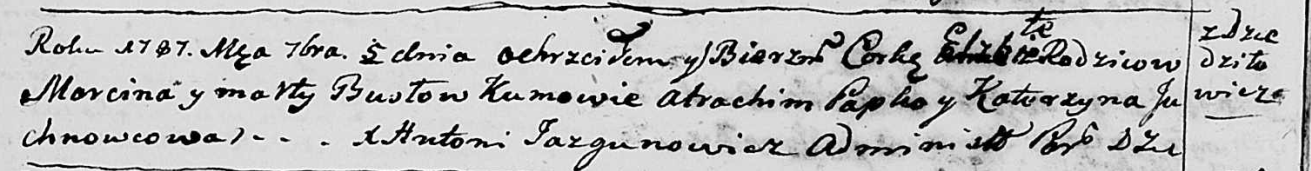 Roku 1787. Mca 7bra. 5 dnia ochrzciłem y Bierzm Corkę Elzbte Rodzicow
Marcina y Marty Busłow Kumowie Atrachim Papko y Katarzyna Ju
chnowcowa) - - . x Antoni Jazgunowicz Administ Par DZie
z Dzie
dziło
wicz